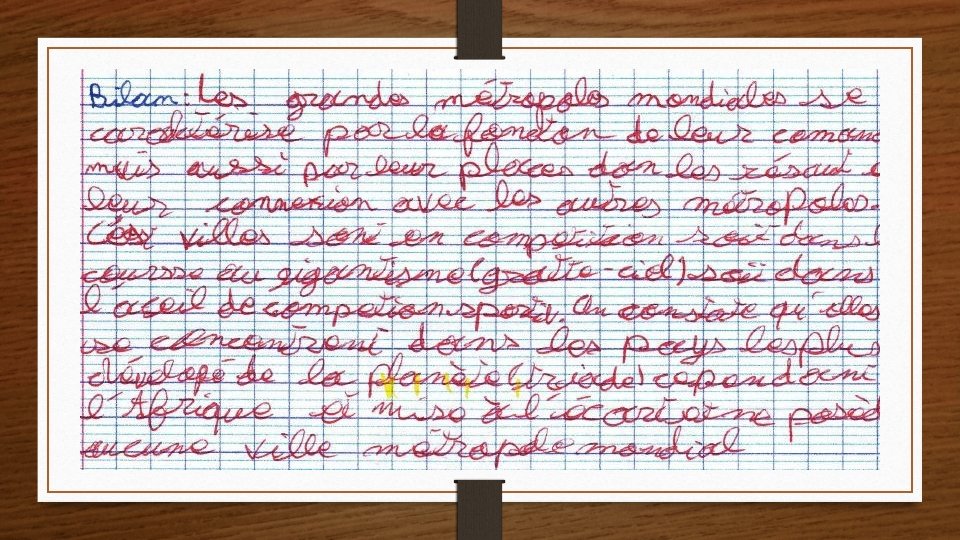 Bilan: Les grandes métropoles mondiales se
caractérise par la fonction de leur coman
mais aussi par leur places dan les résaux
leur connexion avec les autres métropoles.
Ces villes sont en compétition soit dans l
coursse au gigantisme (gratte-ciel) soit dans
l'aceil de compétion sportiv. On constate qu'elles
se concentront dans les pays les plus
dévelopé de la planète (triade) cependant
l'Afrique et mise à l'écart et ne posèd
aucune ville métropole mondial